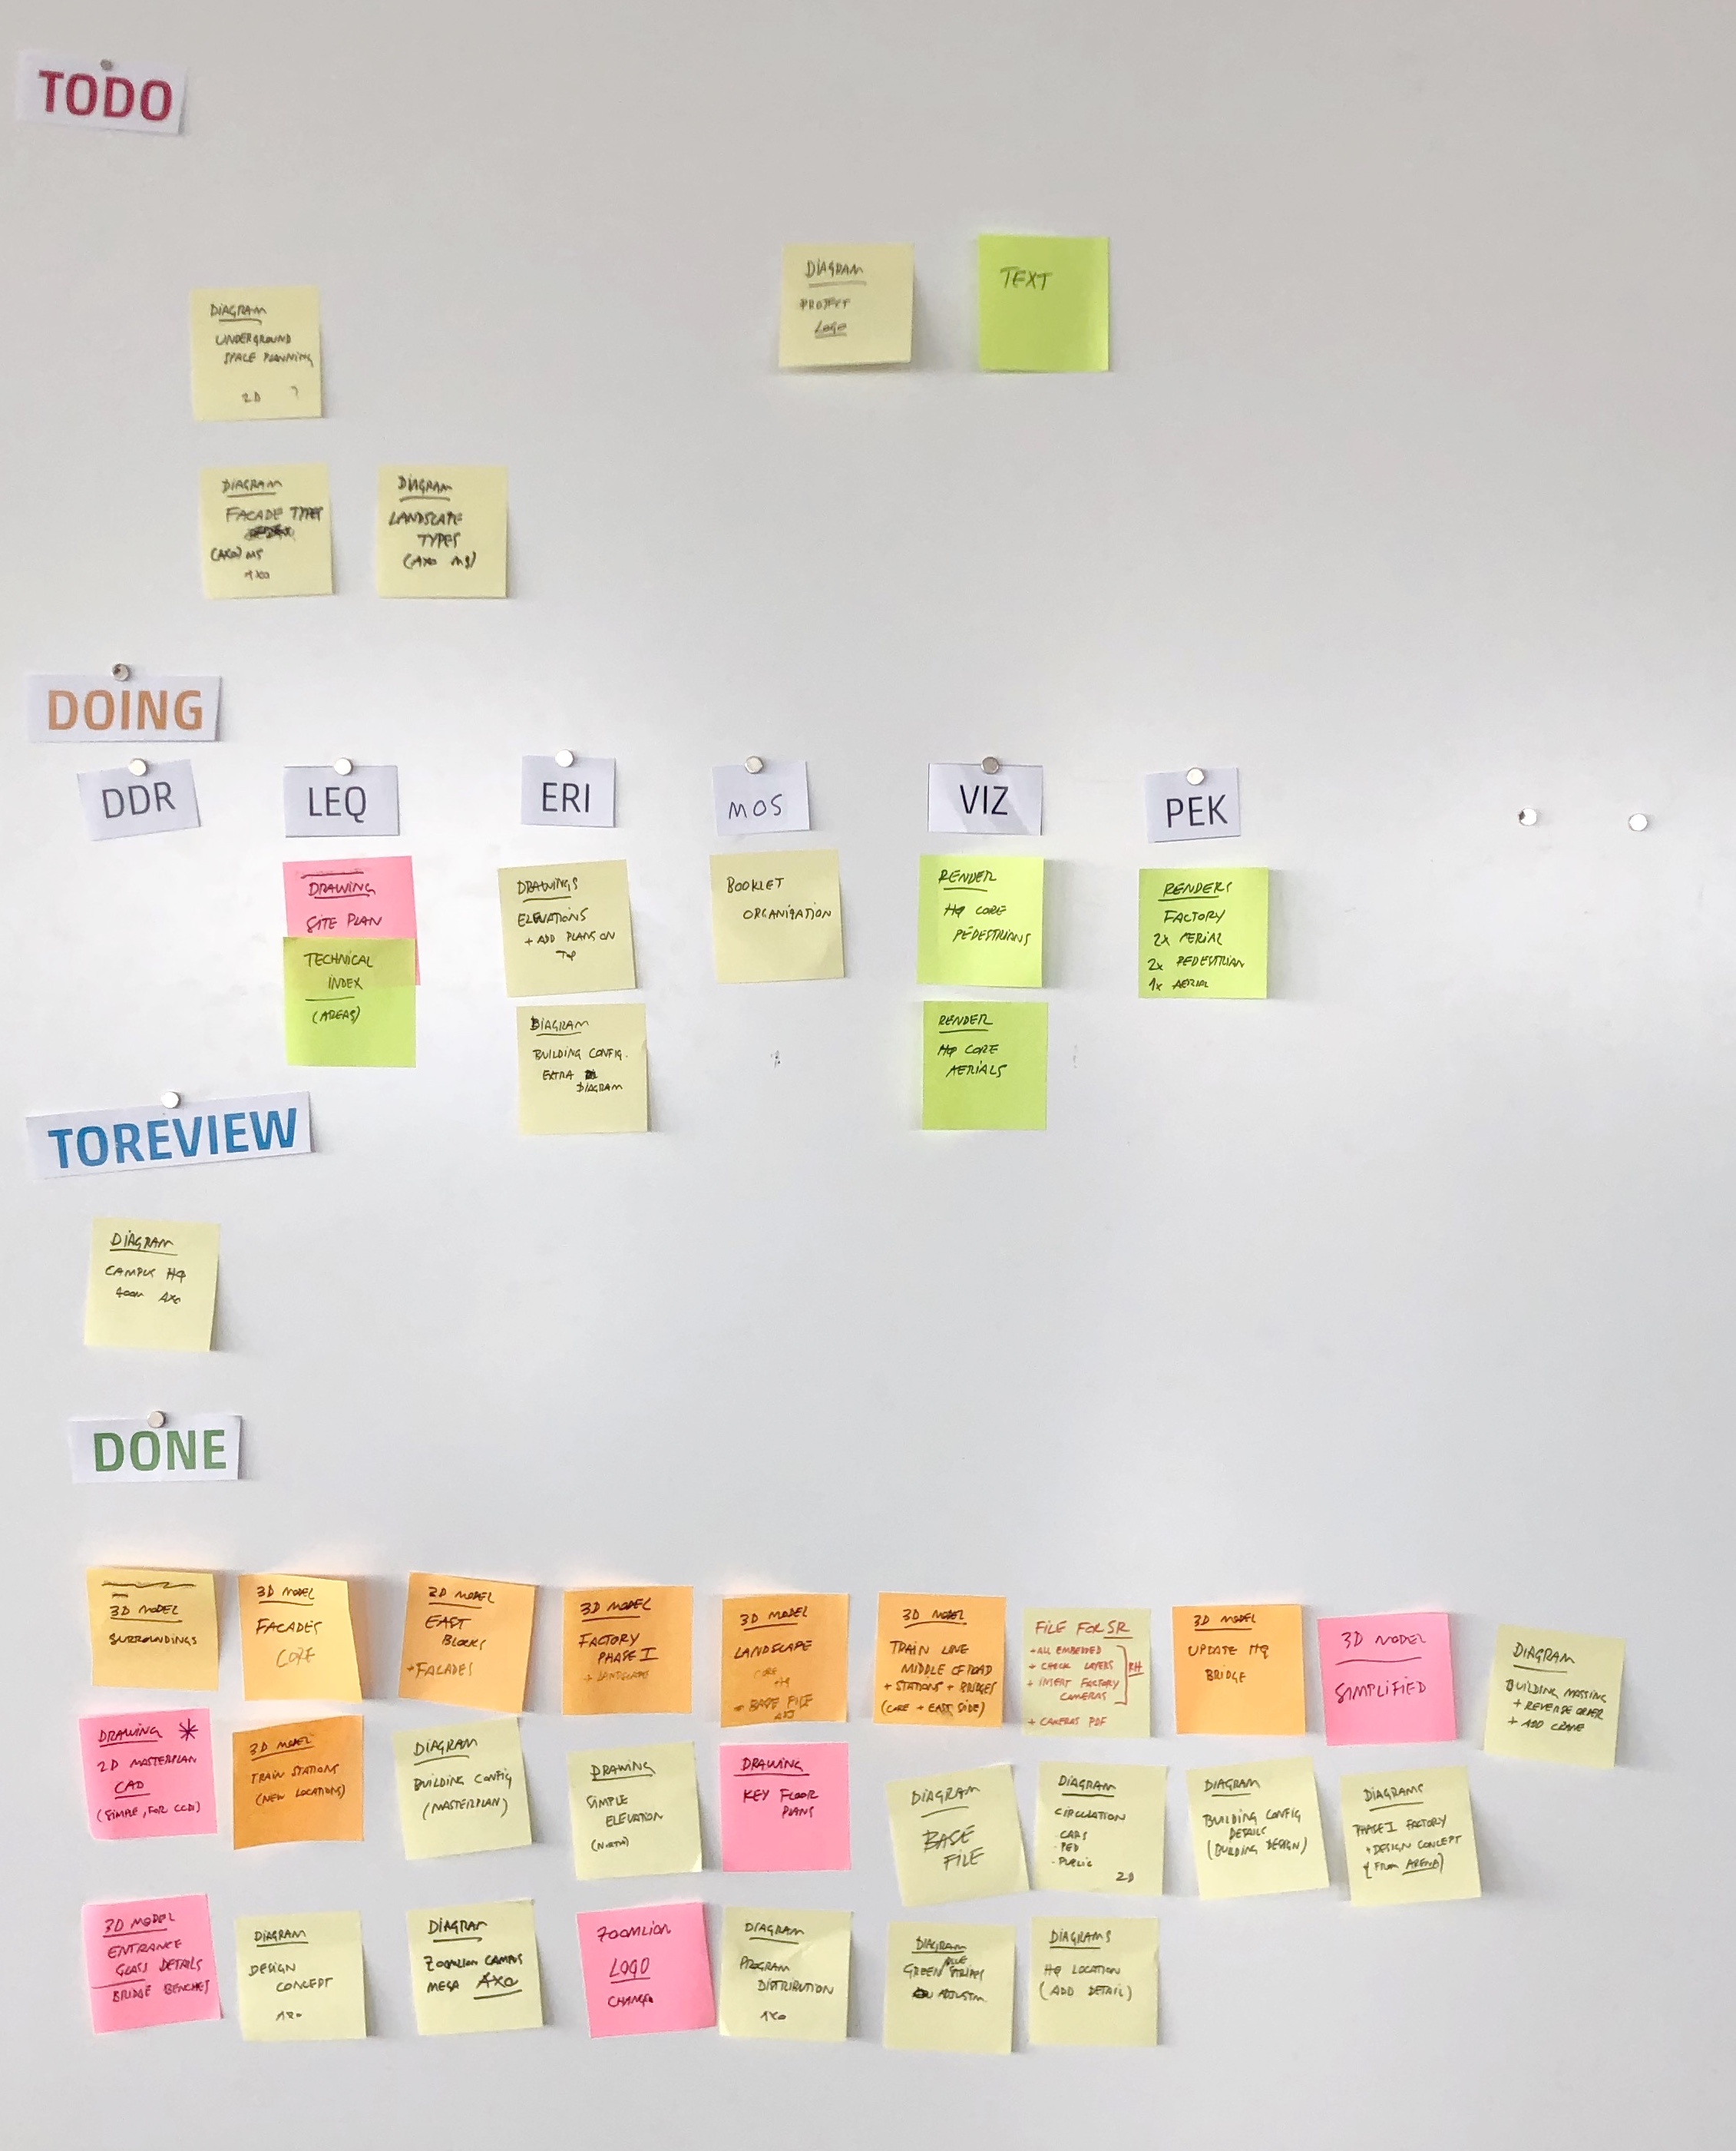 TODO
DIAGRAM
PROJECT
LOGO
TEXT
DIAGRAM
UNDERGROUND
SPACE PLANNING
2D ?
DIAGRAM
FACADE TYPES
(AXO) MS
AXO
DIAGRAM
LANDSCAPE
TYPES
(AXO MS)
DOING
DDR
LEQ
DRAWING
SITE PLAN
TECHNICAL
INDEX
(AREAS)
ERI
DRAWINGS
ELEVATIONS
+ ADD PLANS ON
TOP
DIAGRAM
BUILDING CONFIG.
EXTRA
DIAGRAM
MOS
BOOKLET
ORGANISATION
VIZ
RENDER
HQ CORE
PEDESTRIANS
RENDER
HQ CORE
AERIALS
PEK
RENDERS
FACTORY
2x AERIAL
2x PEDESTRIAN
1x AERIAL
TOREVIEW
DIAGRAM
CAMPUS HQ
ZOOM AXO
DONE
3D MODEL
SURROUNDINGS
3D MODEL
FACADES
CORE
3D MODEL
EAST
BLOCKS
+FACADES
3D MODEL
FACTORY
PHASE I
+ LANDSCAPE
3D MODEL
LANDSCAPE
CORE
+ BASE FILE
ADJ
3D MODEL
TRAIN LINE
MIDDLE OF ROAD
+ STATIONS + BRIDGES
(CORE + EAST SIDE)
FILE FOR SR
+ ALL EMBEDDED
+ CHECK LAYERS
+ INSERT FACTORY
CAMERAS
RH
+ CAMERAS PDF
3D MODEL
UPDATE HQ
BRIDGE
3D MODEL
SIMPLIFIED
DIAGRAM
BUILDING MASSING
+ REVERSE ORDER
+ ADD CRANE
DRAWING *
2D MASTERPLAN
CAD
(SIMPLE, FOR CCDI)
3D MODEL
TRAIN STATIONS
(NEW LOCATIONS)
DIAGRAM
BUILDING CONFIG
(MASTERPLAN)
DRAWING
SIMPLE
ELEVATION
(NORTH)
DRAWING
KEY FLOOR
PLANS
DIAGRAM
BASE
FILE
DIAGRAM
CIRCULATION
- CARS
- PED
- PUBLIC
2D
DIAGRAM
BUILDING CONFIG
DETAILS
(BUILDING DESIGN)
DIAGRAMS
PHASE I FACTORY
+ DESIGN CONCEPT
(FROM ARENA)
3D MODEL
ENTRANCE
GLASS DETAILS
BRIDGE BENCHES
DIAGRAM
DESIGN
CONCEPT
AXO
DIAGRAM
ZOOMLION CAMPUS
MEGA AXO
ZOOMLION
LOGO
CHANGE
DIAGRAM
PROGRAM
DISTRIBUTION
AXO
DIAGRAM
BLUE
GREEN STRIPES
ADJUSTM.
DIAGRAMS
HQ LOCATION
(ADD DETAIL)